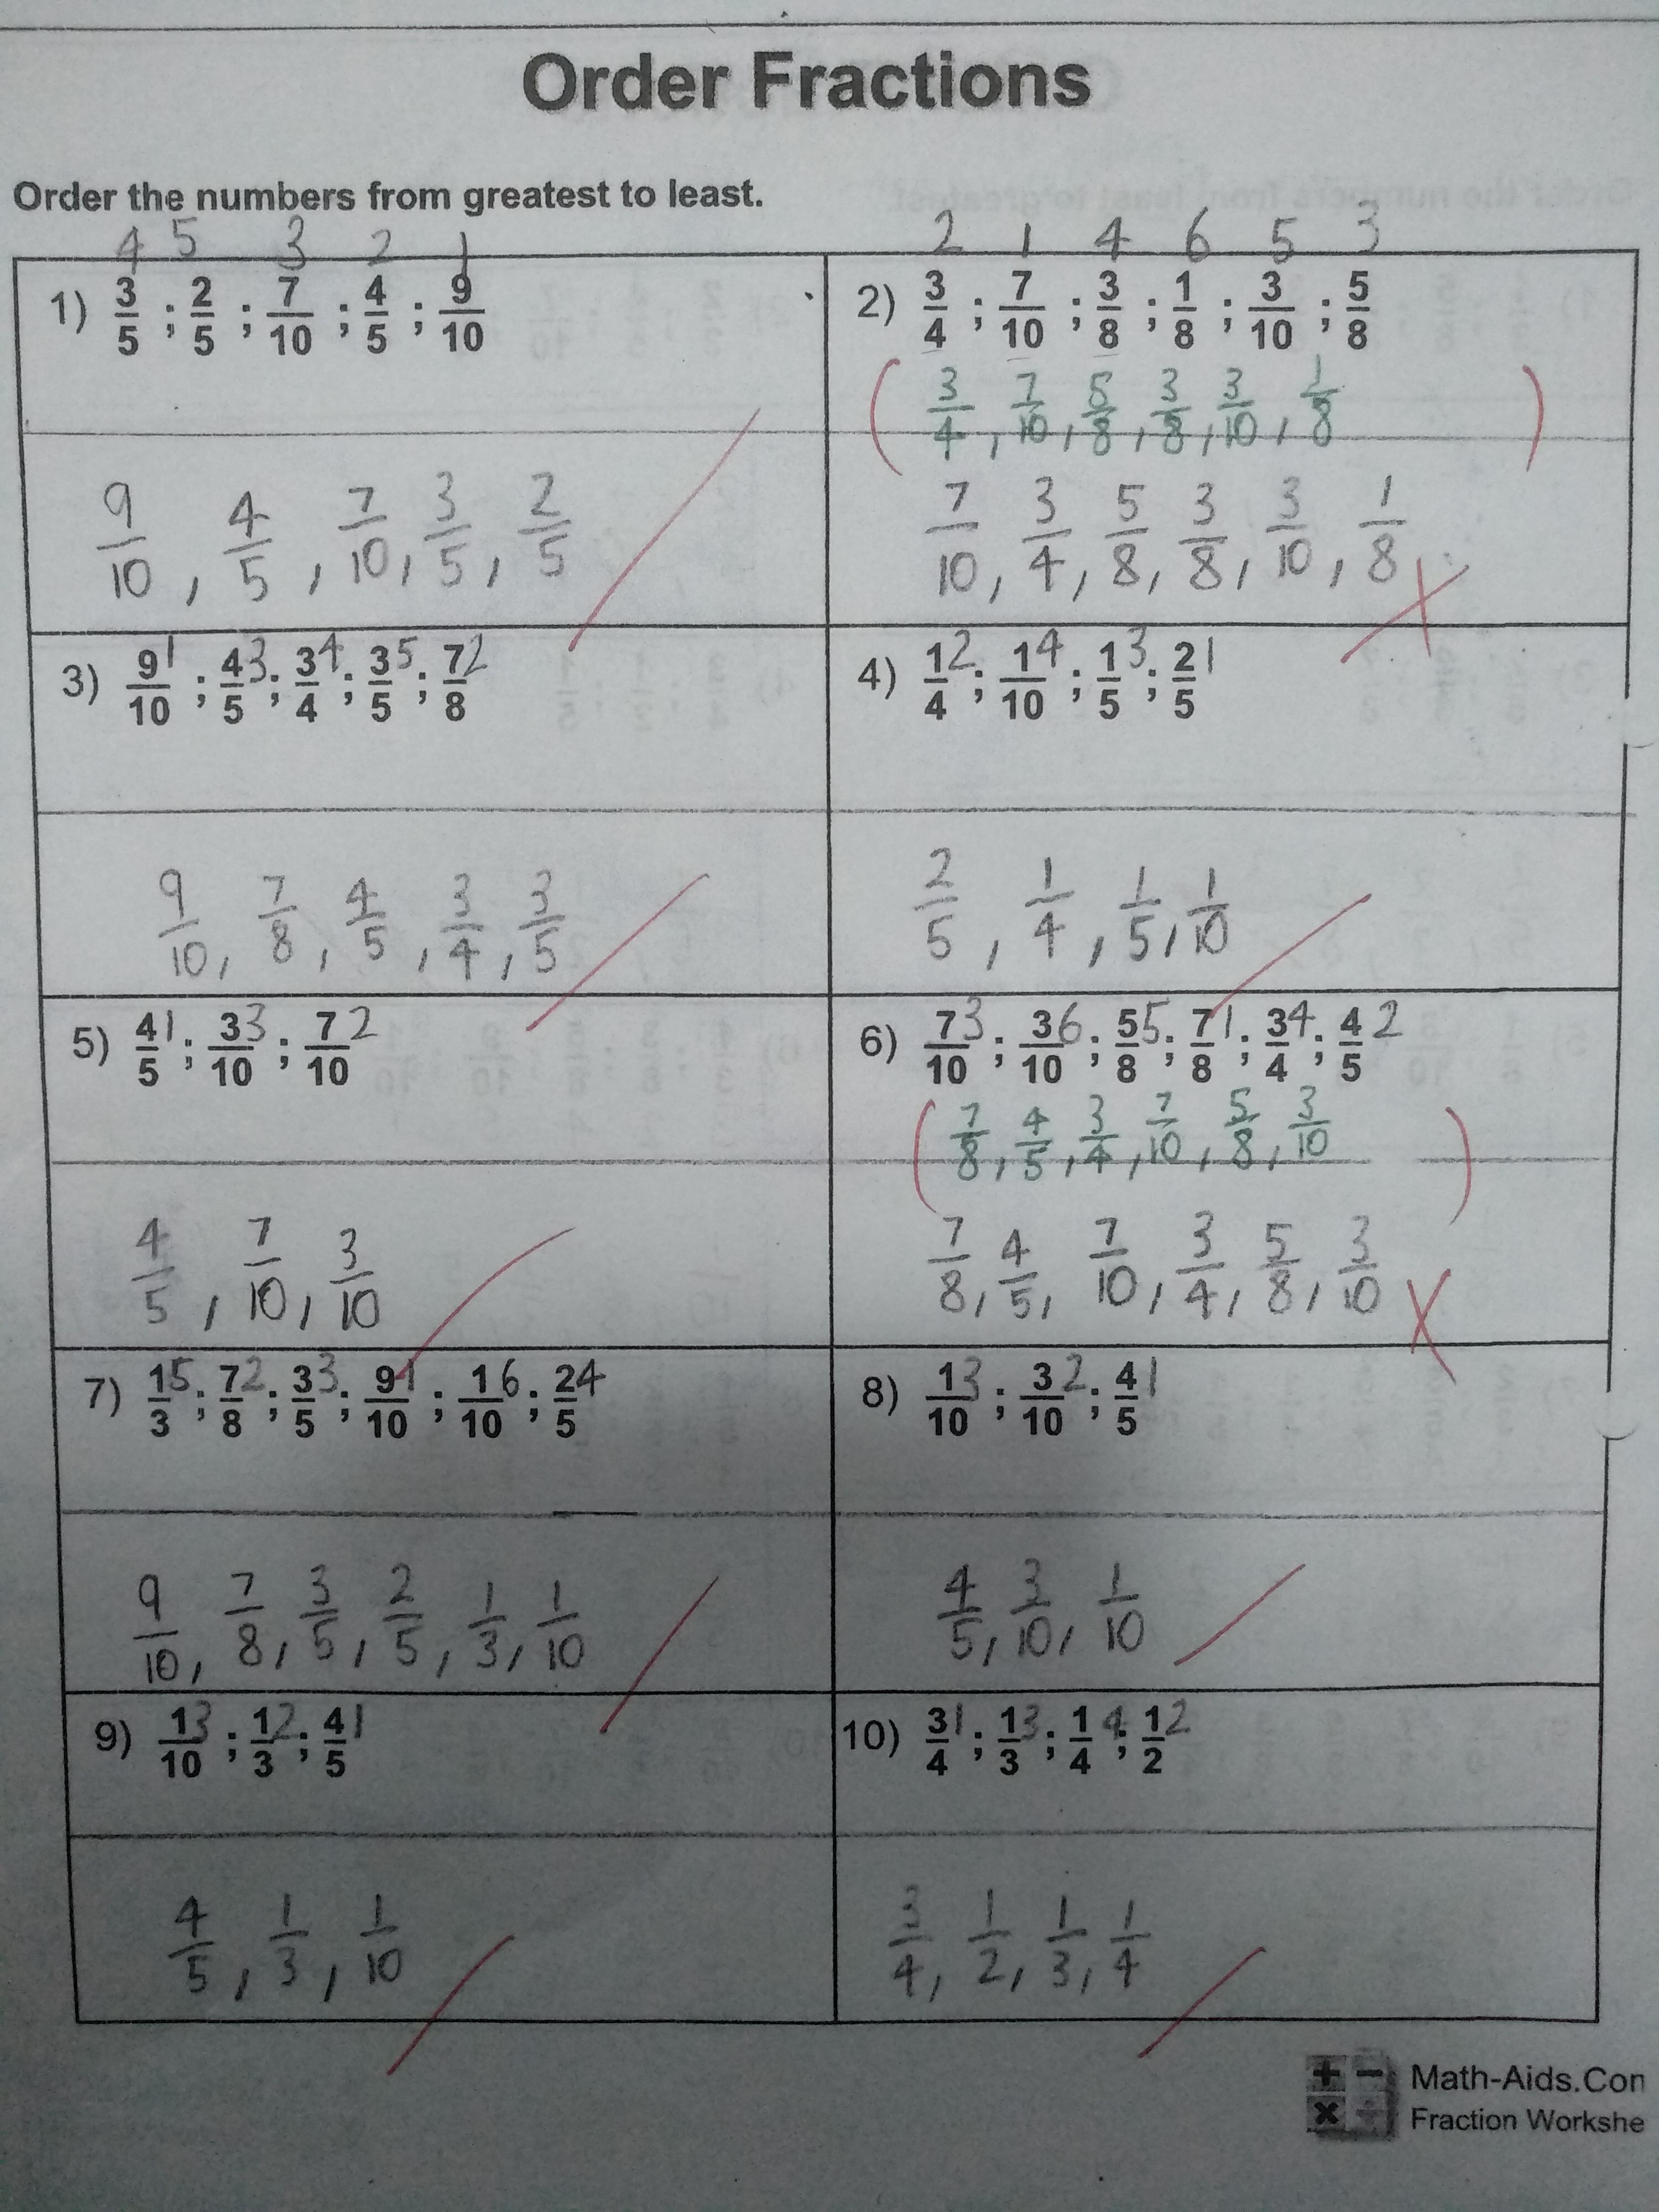 Order Fractions
Order the numbers from greatest to least.
4 5 3 2 1
1) 3/5 ; 2/5 ; 7/10 ; 4/5 ; 9/10
9/10 , 4/5 , 7/10 , 3/5 , 2/5
2 1 4 6 5 3
2) 3/4 ; 7/10 ; 3/8 ; 1/8 ; 3/10 ; 5/8
( 3/4 , 7/10 , 5/8 , 3/8 , 3/10 , 1/8 )
7/10 , 3/4 , 5/8 , 3/8 , 3/10 , 1/8
1 3 4 5 2
3) 9/10 ; 4/5 ; 3/4 ; 3/5 ; 7/8
9/10 , 7/8 , 4/5 , 3/4 , 3/5
2 4 3 1
4) 1/4 ; 1/10 ; 1/5 ; 2/5
2/5 , 1/4 , 1/5 , 1/10
1 3 2
5) 4/5 ; 3/10 ; 7/10
4/5 , 7/10 , 3/10
3 6 5 1 4 2
6) 7/10 ; 3/10 ; 5/8 ; 7/8 ; 3/4 ; 4/5
( 7/8 , 4/5 , 3/4 , 7/10 , 5/8 , 3/10 )
7/8 , 4/5 , 7/10 , 3/4 , 5/8 , 3/10
5 2 3 1 6 4
7) 1/3 ; 7/8 ; 3/5 ; 9/10 ; 1/10 ; 2/5
9/10 , 7/8 , 3/5 , 2/5 , 1/3 , 1/10
3 2 1
8) 1/10 ; 3/10 ; 4/5
4/5 , 3/10 , 1/10
3 2 1
9) 1/10 ; 1/3 ; 4/5
4/5 , 1/3 , 1/10
1 3 4 2
10) 3/4 ; 1/3 ; 1/4 ; 1/2
3/4 , 1/2 , 1/3 , 1/4
Math-Aids.Con
Fraction Workshe